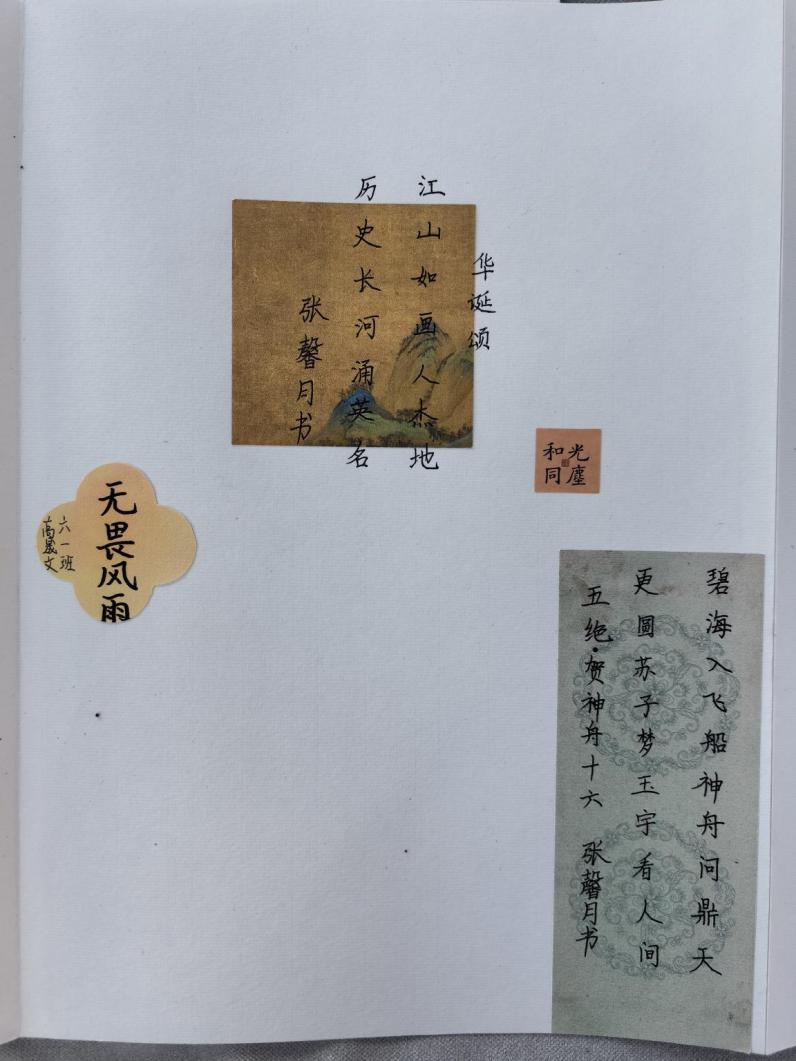 华诞颂
江山如画人杰地
历史长河涌英名
张馨月书
光尘
和同
无畏风雨
六一班
高晟文
碧海入飞船神舟问鼎天
更圆苏子梦玉宇看人间
五绝·贺神舟十六 张馨月书